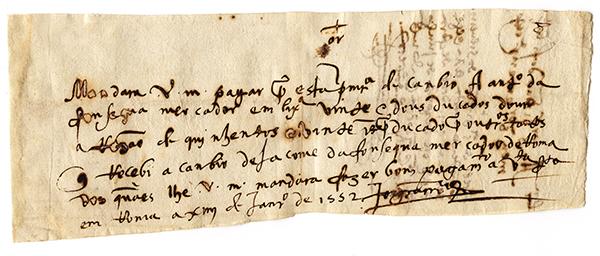 Mandara v. m. pagar p esta prim.ra de canbio A ant.o da
fonsequa mercador em lix.a vinte e dous ducados douro
a Rezão de quinhentos e vinte rs p ducado p outros tantos
q Recebi a canbio de Jacome da fonsequa mercador de Roma
Dos quães lhe v. m. mandara fazer bom pagam.to a
em Roma a xiiij de Jan.ro de 1552